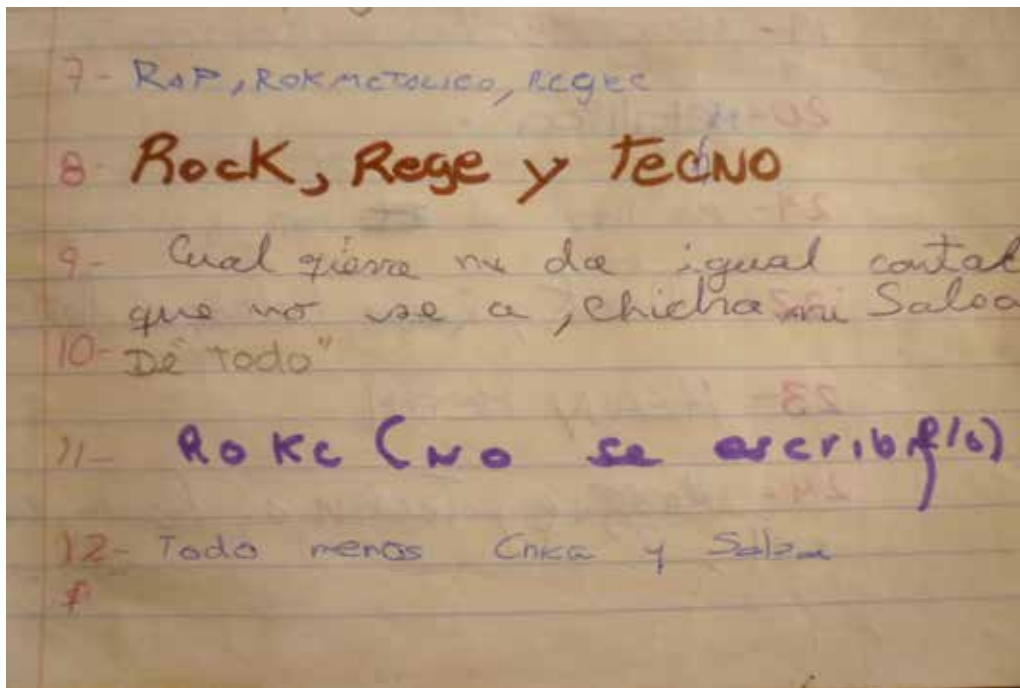 7- RAP, ROKMETALICO, REGEE
8- Rock, Rege y TECNO
9- Cual qierra me da igual contal
que no se a, chicha ni Salsa
10- De "Todo"
11- ROKC (NO se escribirlo)
12- Todo menos Chica y Salza